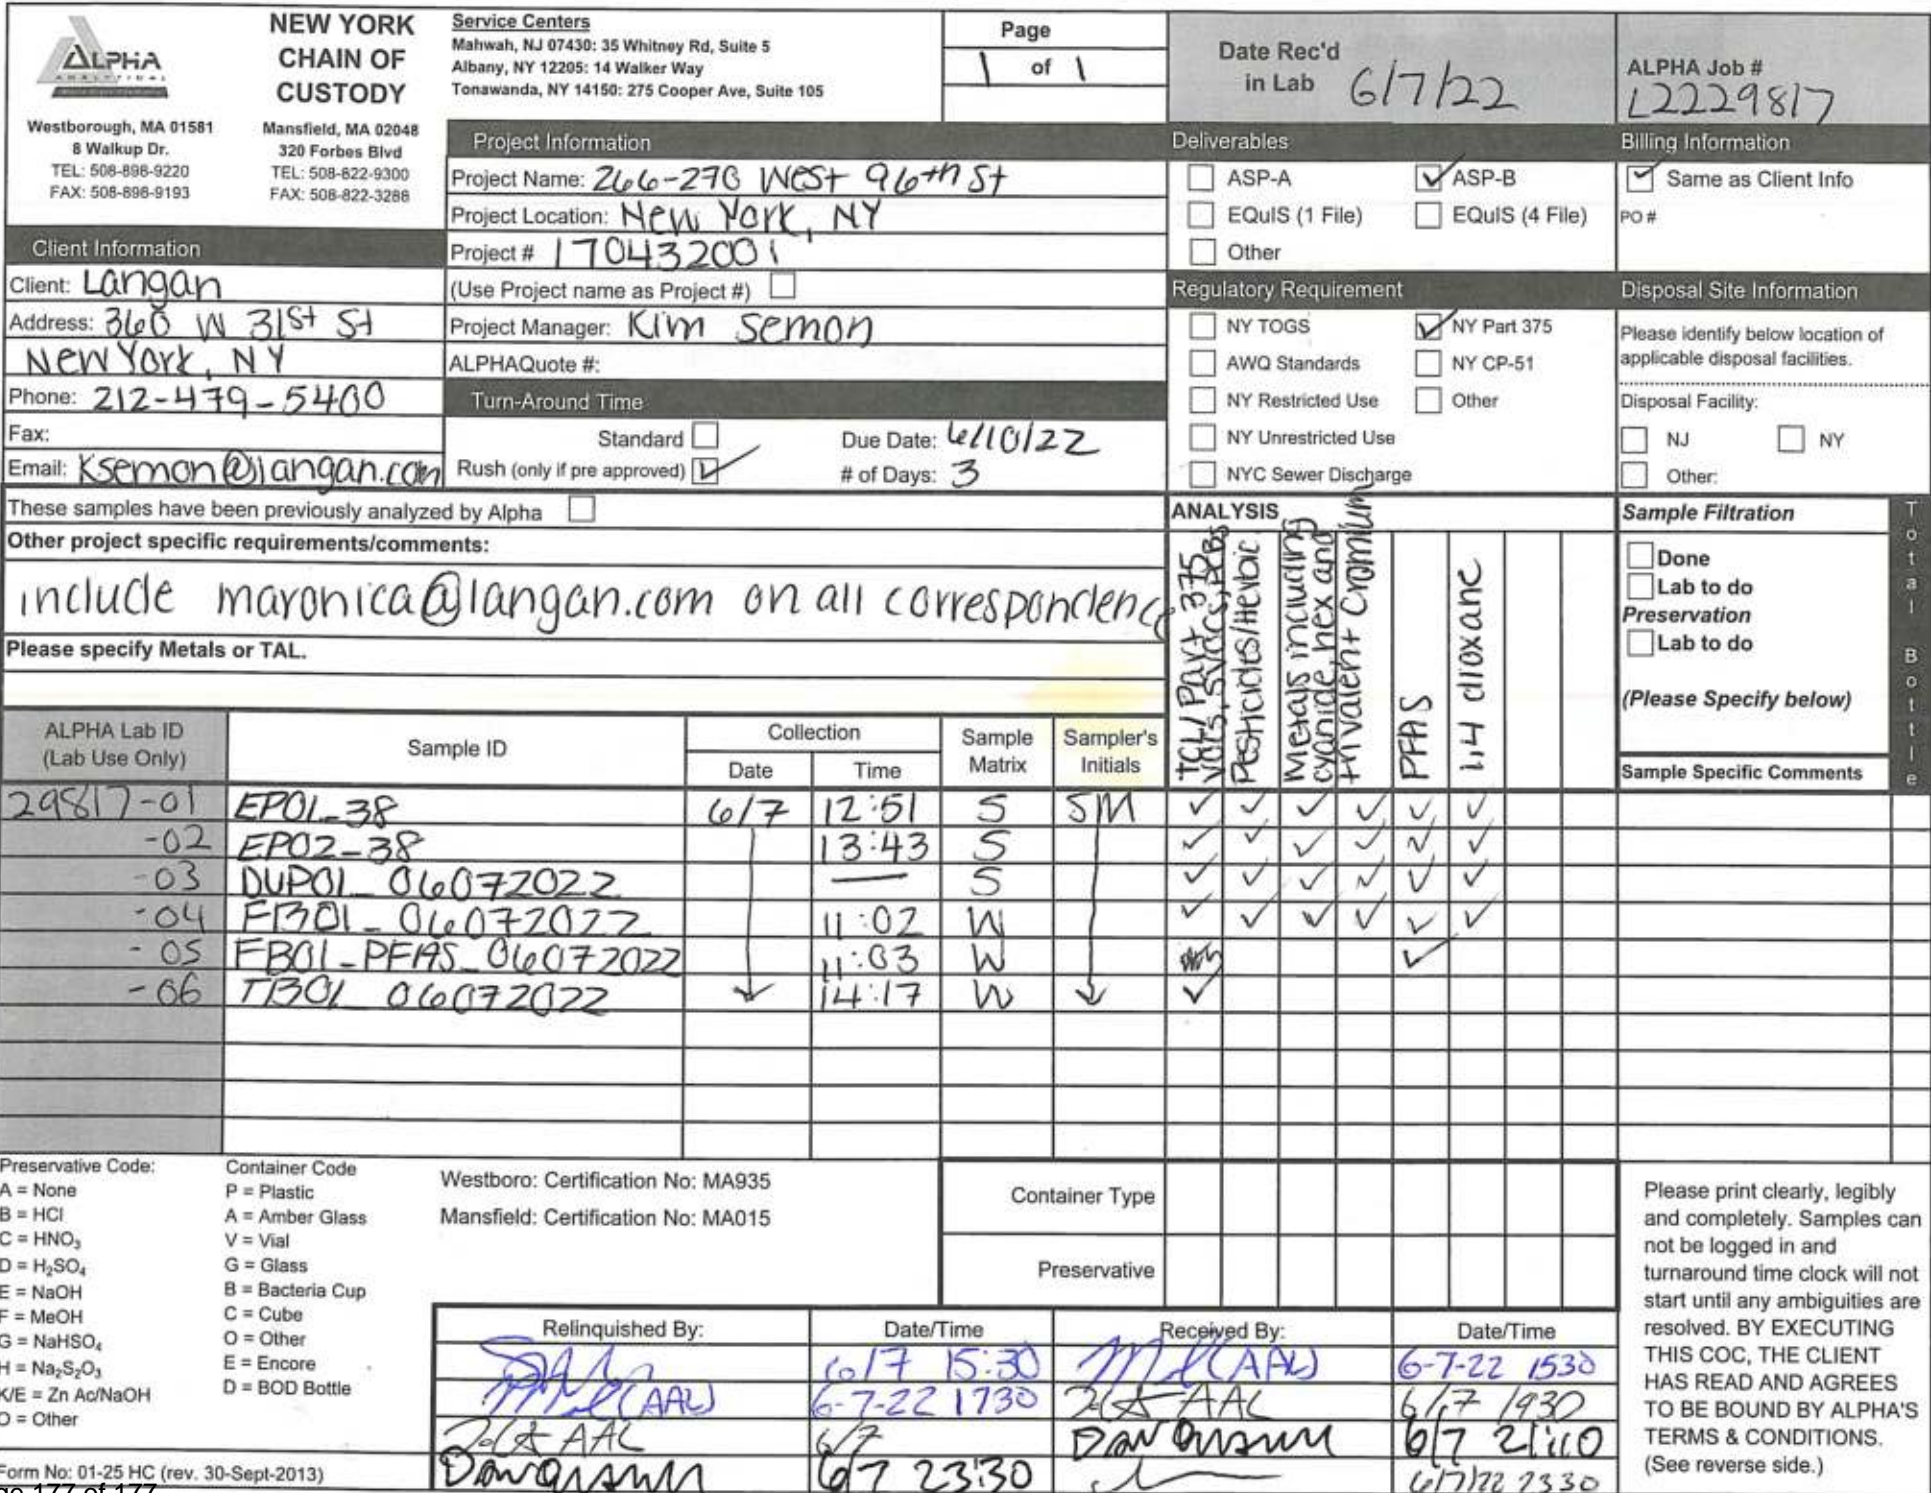 ALPHA
ANALYTICAL
Westborough, MA 01581
8 Walkup Dr.
TEL: 508-898-9220
FAX: 508-898-9193
NEW YORK
CHAIN OF
CUSTODY
Mansfield, MA 02048
320 Forbes Blvd
TEL: 508-822-9300
FAX: 508-822-3288
Service Centers
Mahwah, NJ 07430: 35 Whitney Rd, Suite 5
Albany, NY 12205: 14 Walker Way
Tonawanda, NY 14150: 275 Cooper Ave, Suite 105
Page
1 of 1
Date Rec'd
in Lab 6/7/22
ALPHA Job #
L2229817
Client Information
Client: Langan
Address: 360 W 31st St
New York, NY
Phone: 212-479-5400
Fax:
Email: Ksemon@langan.com
Project Information
Project Name: 266-270 West 96th St
Project Location: New York, NY
Project # 170432001
(Use Project name as Project #)
Project Manager: Kim Semon
ALPHAQuote #:
Turn-Around Time
Standard Due Date: 6/10/22
Rush (only if pre approved) ✓ # of Days: 3
Deliverables
ASP-A ✓ ASP-B
EQuIS (1 File) EQuIS (4 File)
Other
Regulatory Requirement
NY TOGS ✓ NY Part 375
AWQ Standards NY CP-51
NY Restricted Use Other
NY Unrestricted Use
NYC Sewer Discharge
Billing Information
✓ Same as Client Info
PO #
Disposal Site Information
Please identify below location of
applicable disposal facilities.
Disposal Facility:
NJ NY
Other:
These samples have been previously analyzed by Alpha
Other project specific requirements/comments:
include maronica@langan.com on all correspondence
Please specify Metals or TAL.
ANALYSIS
TCL/Part 375
VOCs, SVOCs, PCBs
Pesticides/Herbic
Metals including
cyanide, hex and
trivalent cromium
PFAS
1,4 dioxane
Sample Filtration
Done
Lab to do
Preservation
Lab to do
(Please Specify below)
Sample Specific Comments
Total Bottle
ALPHA Lab ID
(Lab Use Only)
Sample ID
Collection
Date Time
Sample
Matrix
Sampler's
Initials
29817-01 EP01_38 6/7 12:51 S SM ✓ ✓ ✓ ✓ ✓ ✓
-02 EP02-38 13:43 S ✓ ✓ ✓ ✓ ✓ ✓
-03 DUP01_06072022 — S ✓ ✓ ✓ ✓ ✓ ✓
-04 FB01_06072022 11:02 W ✓ ✓ ✓ ✓ ✓ ✓
-05 FB01_PFAS_06072022 11:03 W ✓
-06 TB01_06072022 14:17 W ✓
Preservative Code:
A = None
B = HCl
C = HNO₃
D = H₂SO₄
E = NaOH
F = MeOH
G = NaHSO₄
H = Na₂S₂O₃
K/E = Zn Ac/NaOH
O = Other
Container Code
P = Plastic
A = Amber Glass
V = Vial
G = Glass
B = Bacteria Cup
C = Cube
O = Other
E = Encore
D = BOD Bottle
Westboro: Certification No: MA935
Mansfield: Certification No: MA015
Container Type
Preservative
Relinquished By: Date/Time Received By: Date/Time
6/7 15:30 (AAL) 6-7-22 1530
(AAL) 6-7-22 1730 AAL 6/7 1930
AAL 6/7 6/7 21:10
6/7 23:30 6/7/22 2330
Please print clearly, legibly
and completely. Samples can
not be logged in and
turnaround time clock will not
start until any ambiguities are
resolved. BY EXECUTING
THIS COC, THE CLIENT
HAS READ AND AGREES
TO BE BOUND BY ALPHA'S
TERMS & CONDITIONS.
(See reverse side.)
Form No: 01-25 HC (rev. 30-Sept-2013)
177 of 177